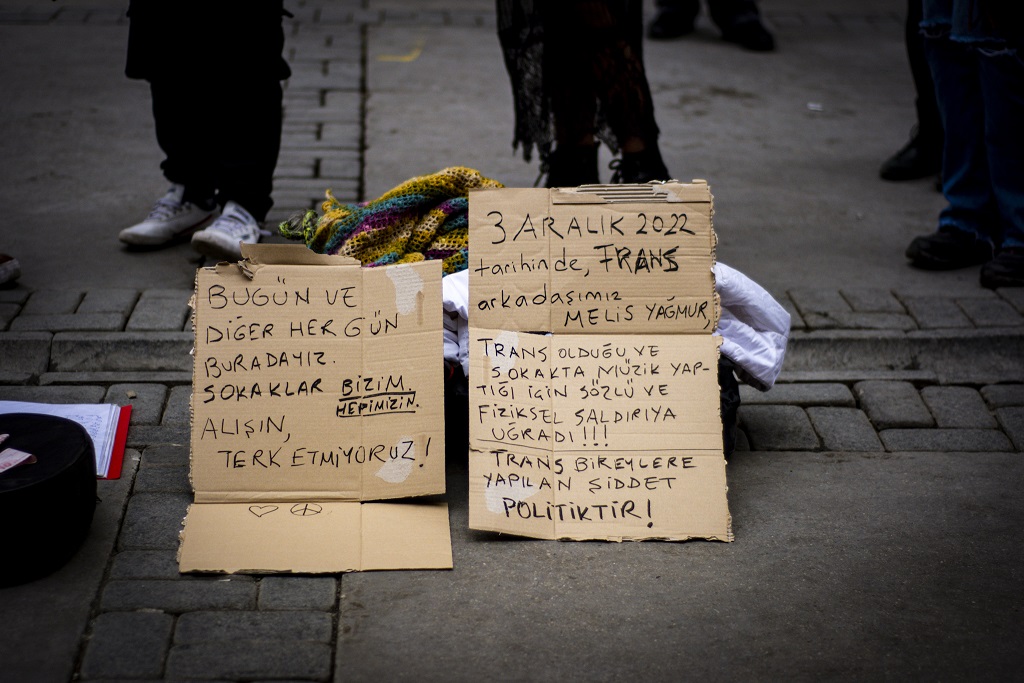 BUGÜN VE
DİĞER HER GÜN
BURADAYIZ.
SOKAKLAR BİZİM.
HEPİMİZİN.
ALIŞIN,
TERK ETMİYORUZ!
3 ARALIK 2022
tarihinde, TRANS
arkadaşımız
MELİS YAĞMUR,
TRANS OLDUĞU VE
SOKAKTA MÜZİK YAP-
TIĞI İÇİN SÖZLÜ VE
FİZİKSEL SALDIRIYA
UĞRADI!!!
TRANS BİREYLERE
YAPILAN ŞİDDET
POLİTİKTİR!